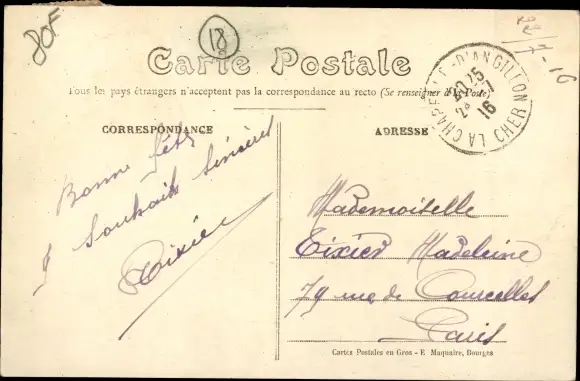 80F
18
22/7-16
Carte Postale
Tous les pays étrangers n'acceptent pas la correspondance au recto (Se renseigner à la Poste)
LA CHAPELLE-D'ANGILLON CHER
16
CORRESPONDANCE
Bonne fête
& Souhaits Sincères
Tixier
ADRESSE
Mademoiselle
Tixier Madeleine
79 rue de Courcelles
Paris
Cartes Postales en Gros - E Maquaire, Bourges